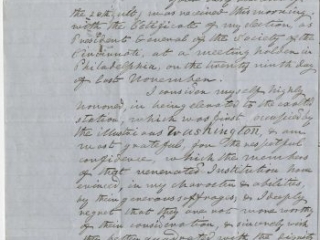 the 24th ulto, was received this morning,
with the Certificate of my election as
President General of the Society of the
Cincinnati, at a meeting holden in
Philadelphia, on the twenty ninth day
of last November.
I consider myself highly
honored, in being elevated to the exalted
station, which was first occupied by
the illustrious Washington, & am
most grateful, for the respectful
confidence, which the members
of that venerated Institution have
evinced, in my character & abilities,
by their generous suffrages, & I deeply
regret that they are not more worthy
of their consideration, & sincerely wish
the dignity